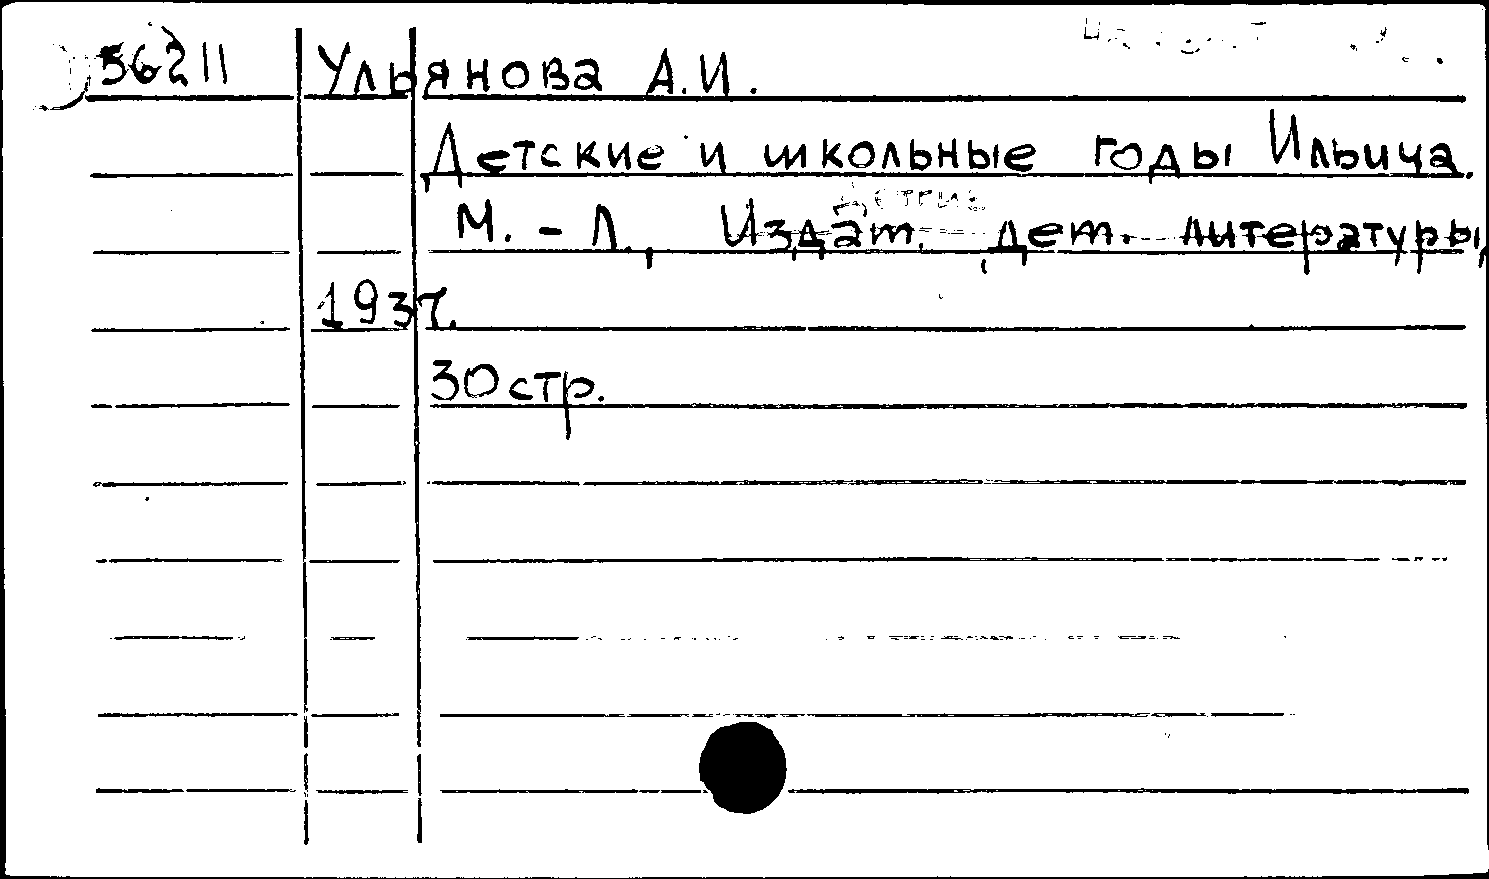 56211 Ульянова А.И.
Детские и школьные годы Ильича.
Детгиз
М. - Л., Издат. дет. литературы,
1937.
30 стр.